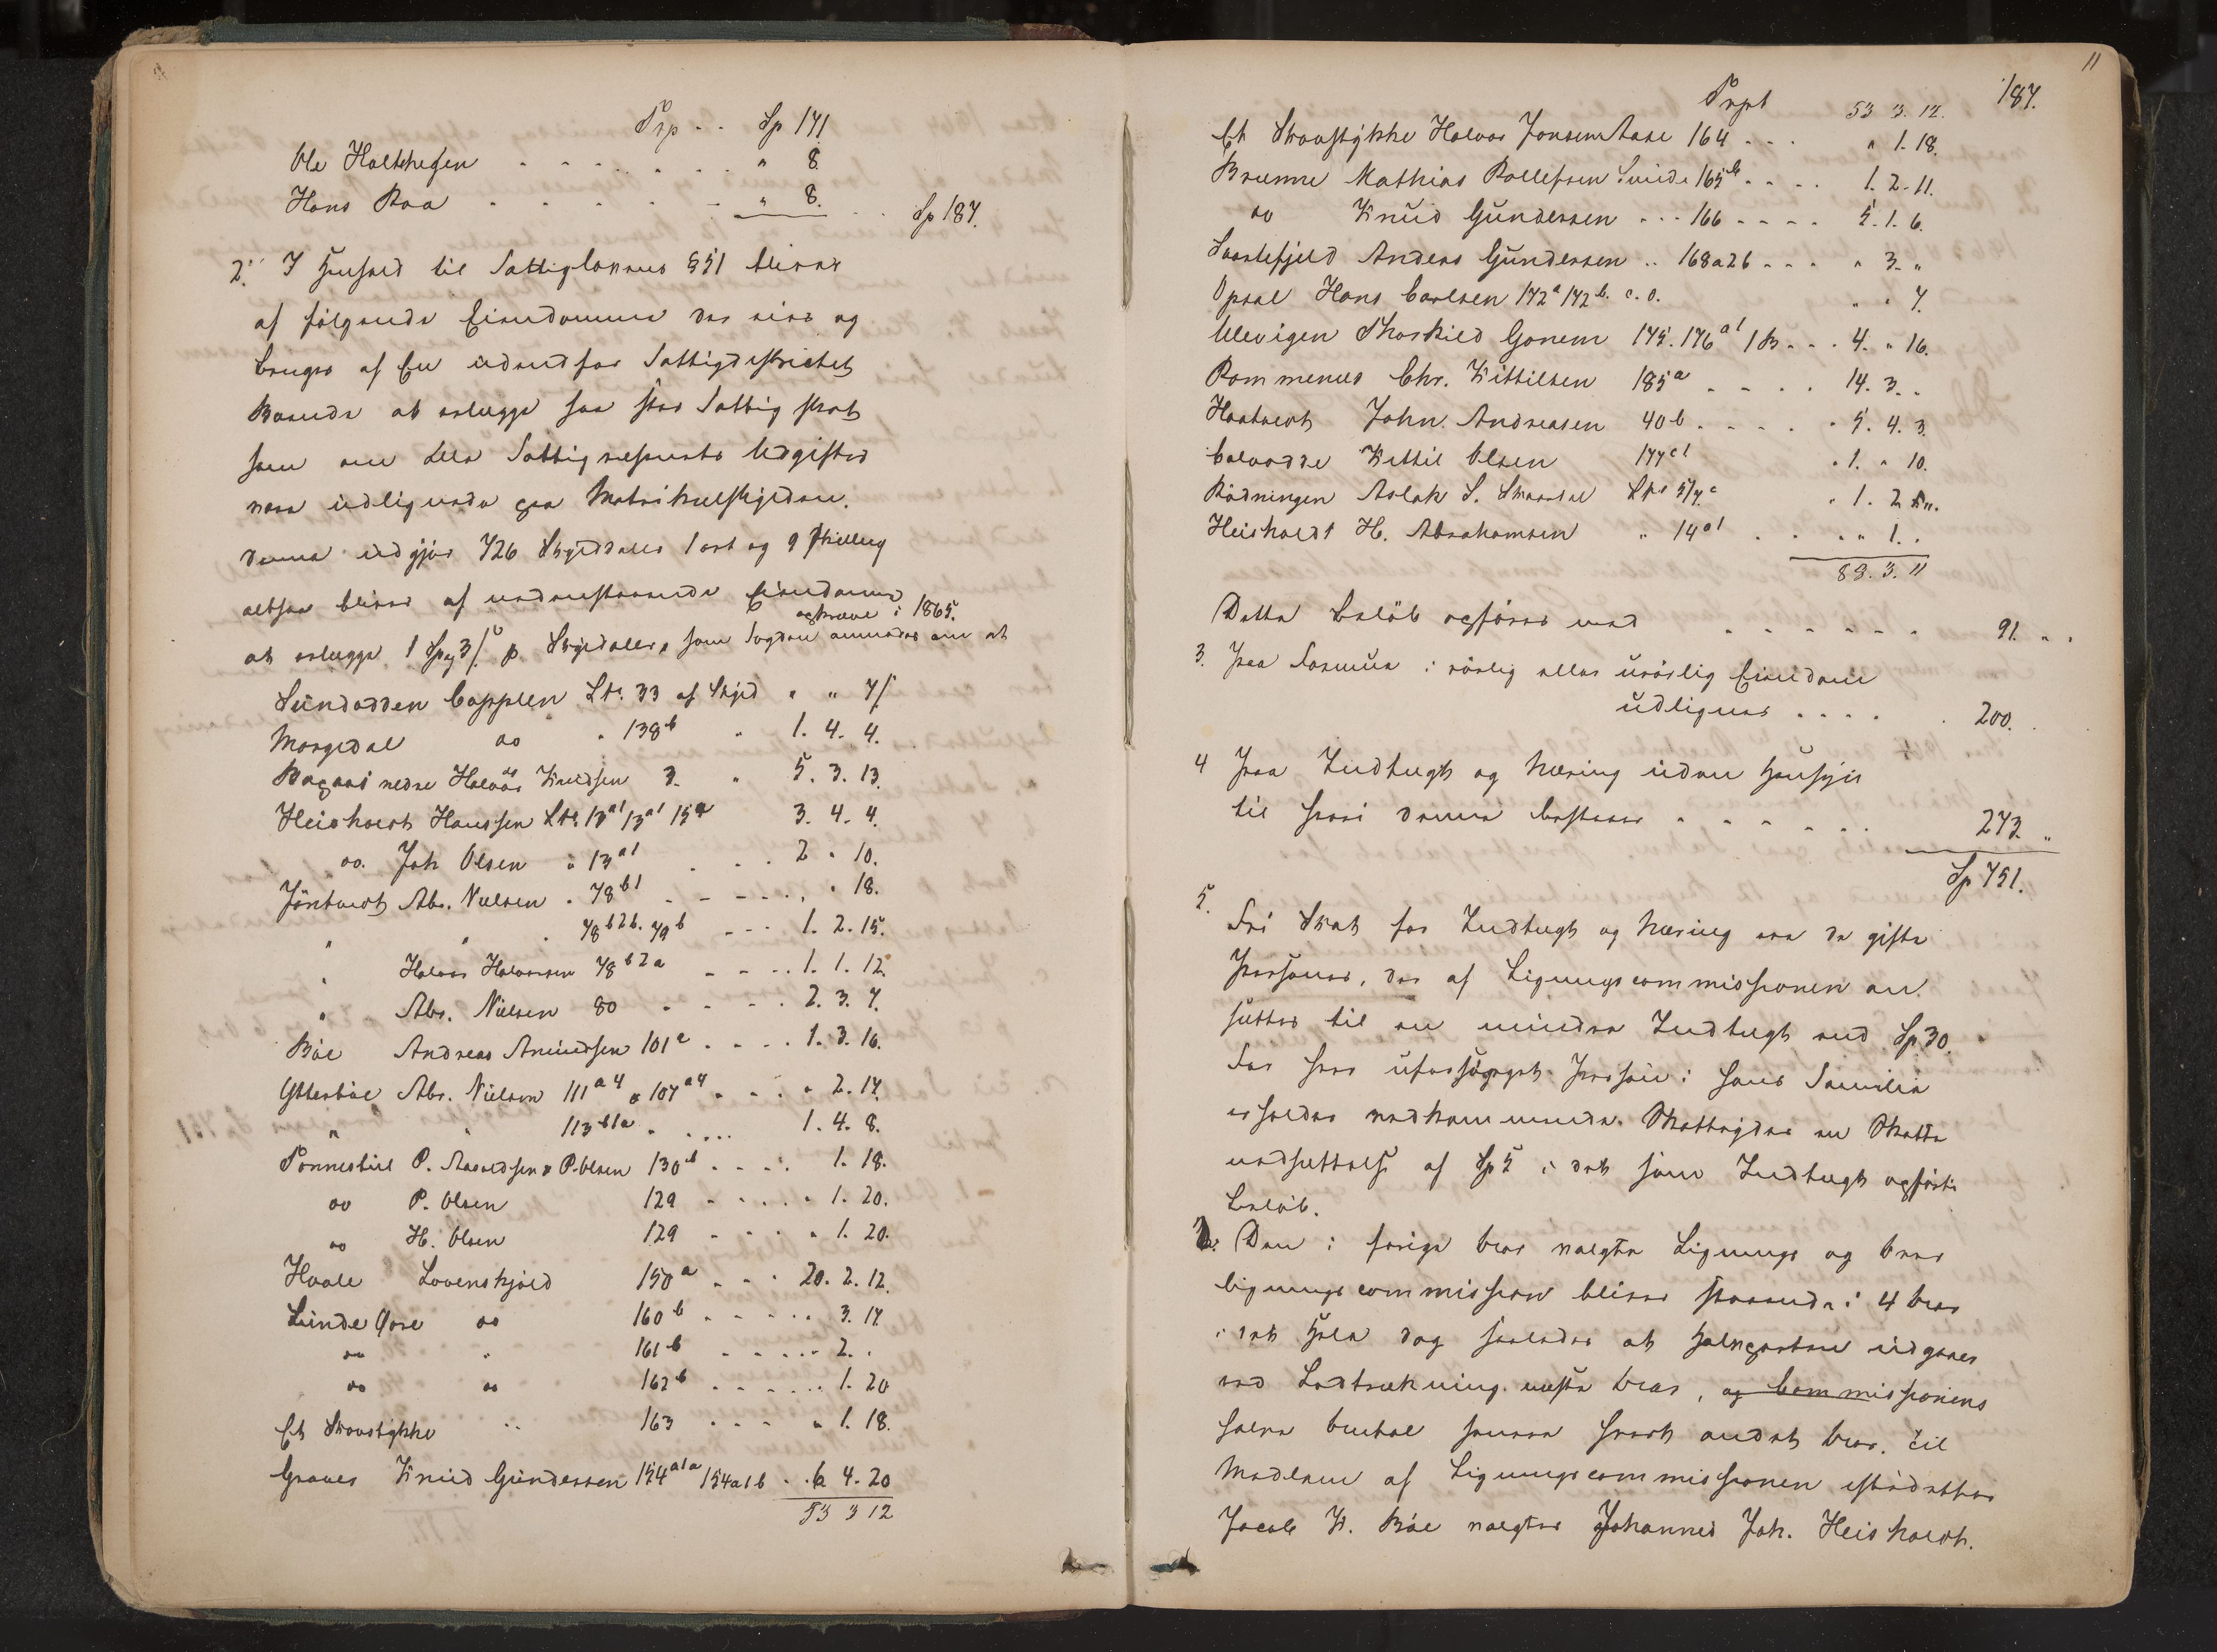 Trp . . Sp 171
Ole Holtskogen . . . . . . " 8.
Hans Raa . . . . . . " 8. . . Sp 187.
2. I Henhold til Fattiglovens § 51 bliver
af følgende Eiendomme der eies og
bruges af En udenfor Fattigdistrictet
Boende at erlægge saa stor Fattigskat
som om alle Fattigvæsenets Udgifter
vare udlignede paa Matrikulskylden.
Denne udgjør 726 Skylddaler 1 ort og 9 skilling
altsaa bliver af nedenstaaende Eiendomme
opkræve i 1865.
at erlægge 1 Sp 3 /. p. Skylddaler, som Fogden anmodes om at
Sundodden Capplen Lbr. 33 af Skyld " " 7 /.
Morgedal do " 138 b " 1. 4. 4.
Bagaas nedre Halvor Knudsen 3. " 5. 3. 13.
Heisholdt Hansen Lbr. 13 a1 15 a 3. 4. 4.
do. Joh Olsen " 13 a1 . . . 2 " 10.
Jønholdt Abr. Nielsen . 78 b1 . . . . " 18.
" " . 78 b2b. 79 b . . . 1. 2. 15.
" Halvor Halvorsen 78 b2a . . . . 1. 1. 12.
" Abr. Nielsen 80 . . . . 2. 3. 7.
Bøe Andreas Amundsen 101 c . . . . 1. 3. 16.
Ytterbøe Abr. Nielsen 111 a4 & 107 a4 . . . " 2. 17.
" " 113 b1a . . . . 1. 4. 8.
Tønnesbøe P. Aasoldsen & P. Olsen 130 b . . . . 1. 18.
do P. Olsen 129 . . . . . 1. 20.
do H. Olsen 129 . . . . " 1. 20.
Hvale Lovenskjold 150 a . . . 20. 2. 12.
Lunde Øvre do 160 b . . . . . 3. 17.
do " 161 b . . . . . 2. .
do do 162 b . . . . . . 1. 20
Et Skovstykke " 163 . . . . " 1. 18.
Graver Knud Gundersen 154 a1a 154a1b . . 6 4. 20
53 3 12
11
Trpt 53 3. 12. 187.
Et Skovstykke Halvor Jonsen Aase 164 . . . " 1. 18.
Brunne Mathias Rollefsen Lunde 165 b . . . . 1. 2. 11.
do Knud Gundersen . . . 166 . . . . 5. 1. 6.
Svartefjeld Anders Gundersen . . 168a2b . . . " 3. "
Opsal Hans Carlsen 172 a 172 b. c. d. " " 7.
Ulevigen Thorkild Gonem 175. 176 a1 1 B . . . 4. " 16.
Rommenes Chr. Kittilsen 185 a . . . . 14. 3. .
Haatvedt John. Andreasen 40 b . . . . . 5. 4. 3.
Kittil Olsen 177 c1 . 1. " 10.
Rødningen Aslak S. Lbr 5/7 c " 1. 2
Heisholdt H. Abrahamsen " 14 a1 . . " " 1. .
89. 3. 11
Dette Beløb opføres med . . . . . . . 91. . .
3. Paa Formue i rørlig eller urørlig Eiendom
udlignes . . . . . 200.
4 Paa Indtægt og Næring uden Hensyn
til hvori denne bestaaer . . . . . . 273. "
Sp 751.
5. Fri Skat for Indtægt og Næring ere de gifte
Personer, der af Ligningscommissionen an
sættes til en mindre Indtægt end Sp 30.
For hver uforsørget Person i hans Familie
erholder vedkommende Skatteyder en Skatte
nedsættelse af Sp 5 i det som Indtægt opførte
Beløb.
Den i forige Aar valgte Lignings og Over
ligningscommission bliver staaende i 4 Aar
i det Hele dog saaledes at Halvparten udgaaer
ved Lodtrækning næste Aar, og Commissionens
halve Antal senere hvert andet Aar. Til
Medlem af Ligningscommissionen istedetfor
Jacob K. Bøe valgtes Johannes Joh. Heisholdt.